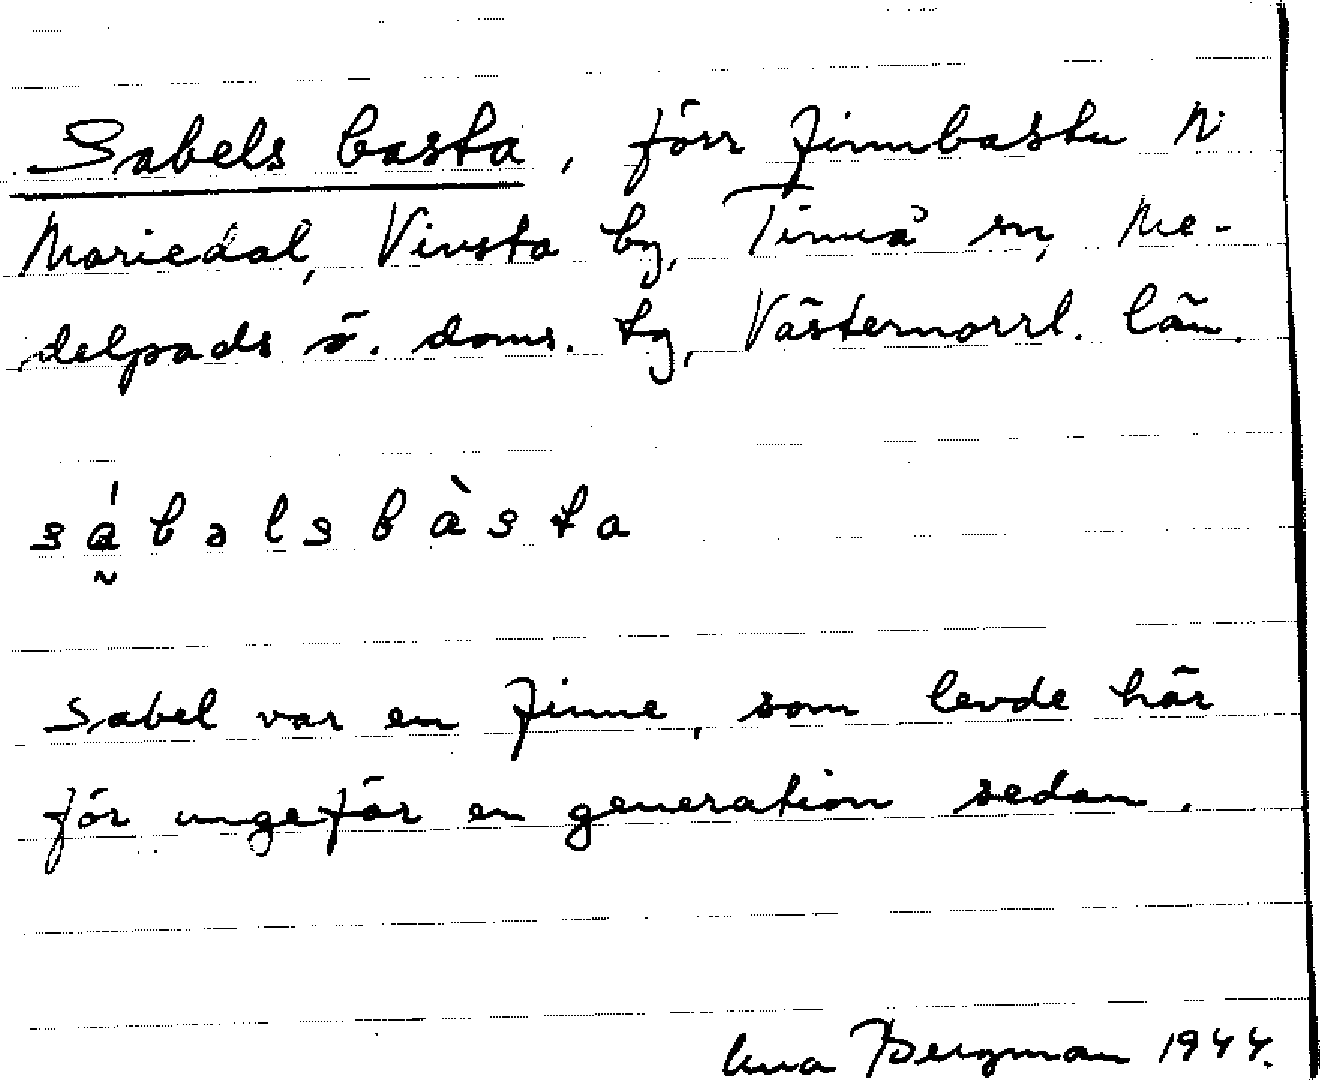 Sabels basta, förr Finnbastu N
Mariedal, Vivsta by, Timrå sn, Me-
delpads ö. doms. tg, Västernorrl. län.
sá̰bəlsbàsta
Sabel var en Finne, som levde här
för ungefär en generation sedan.
Bergman 1944.